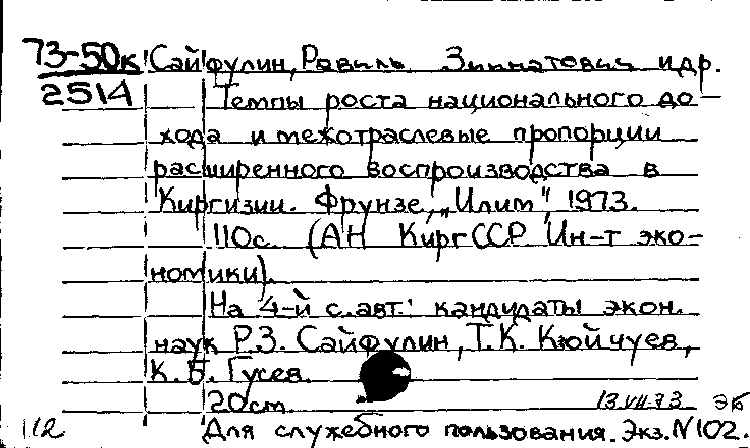 73-50к Сайфулин, Равиль Зиннатович и др.
2514 Темпы роста национального до-
хода и межотраслевые пропорции
расширенного воспроизводства в
Киргизии. Фрунзе, „Илим", 1973.
110с. (АН Кирг ССР Ин-т эко-
номики).
На 4-й с. авт.: кандидаты экон.
наук Р.З. Сайфулин, Т.К. Кюйчуев,
К.Б. Гусев.
20см. 13 VII-73 ЭБ
112 Для служебного пользования. Экз. N 102.